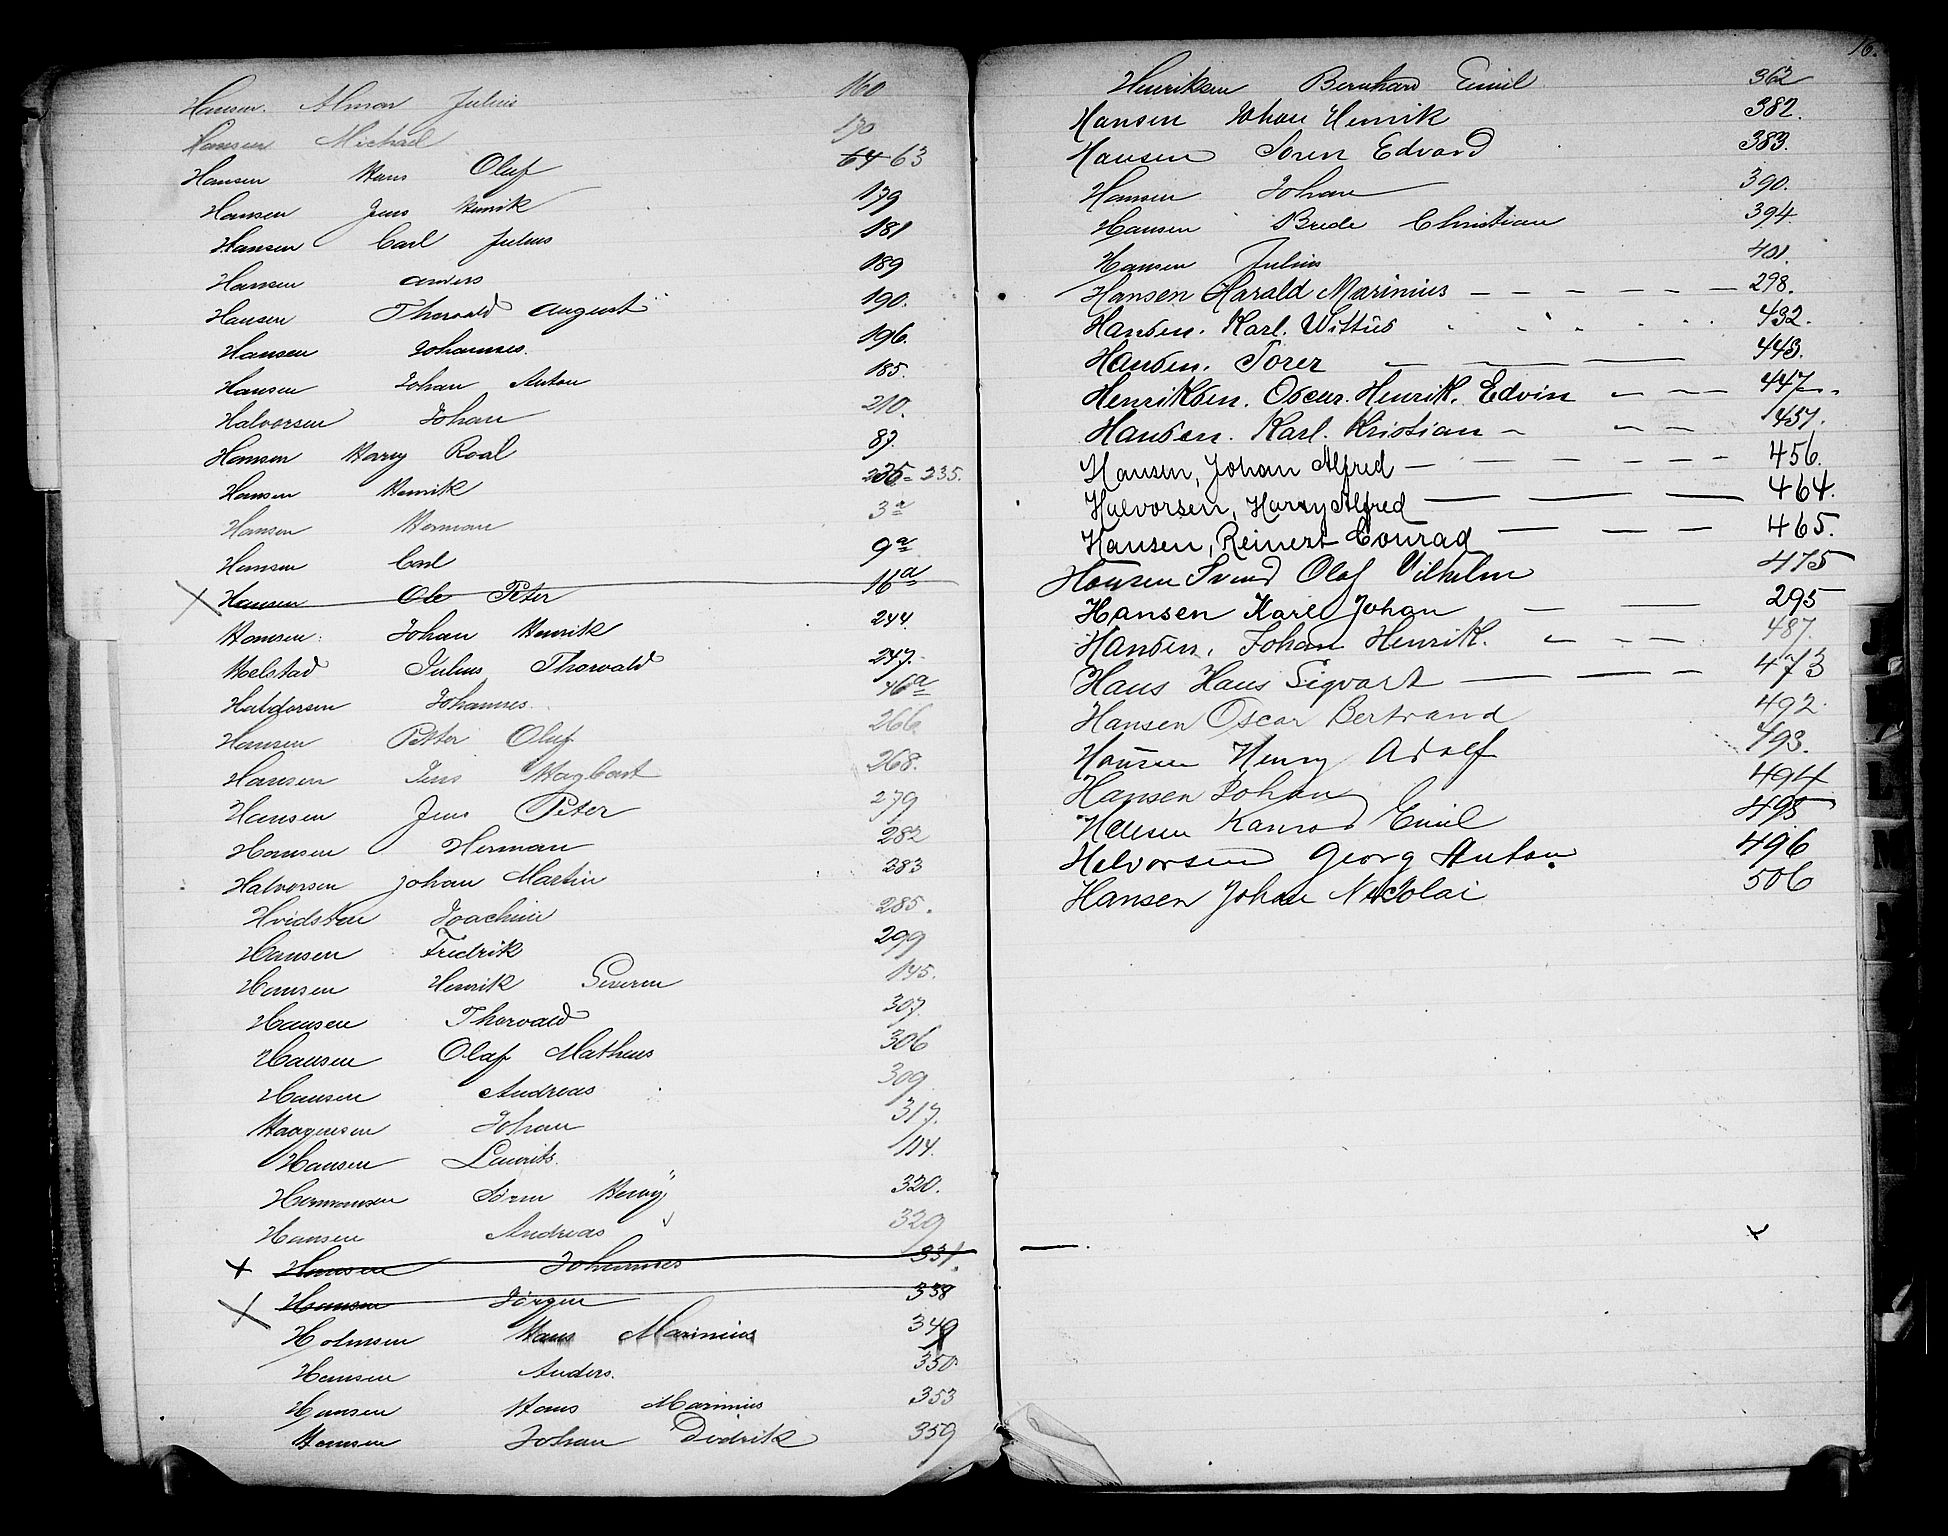 Hansen. Almar Julius 160
Hansen Michael 170
Hansen Hans Oluf 64 63
Hansen Jens Henrik 179
Hansen Carl Julius 181
Hansen Anders 189
Hansen Thorvald August 190.
Hansen Johannes. 196.
Hansen Johan Anton 185.
Halvorsen Johan 210.
Hansen Harry Roal 87.
Hansen Henrik 235.
Hansen Herman 3a
Hansen Carl 9a
Hansen Ole Peter 16a
Hansen. Johan Henrik 244.
Helstad Julius Thorvald 247.
Haldorsen Johannes. 46a
Hansen Petter Oluf 266
Hansen Jens Hagbart 268.
Hansen Jens Peter 279
Hansen Herman 282
Halvorsen Johan Martin 283
Hvidsten Joachim 285.
Hansen Fredrik 299
Hansen Henrik Severin 145.
Hansen Thorvald 307.
Hansen Olaf Matheus 306
Hansen Andreas 309
Haagensen Johan 317.
Hansen Laurits. 114.
Hermansen Sörm Henry 320.
Hansen Andreas 329
Hansen Johannes 331.
Hansen Jörgen 338
Holmsen Hans Marinius 349
Hansen Anders. 350.
Hansen Hans Marinius 353
Hansen Johan Didrik 359
16.
Henriksen Bernhard Emil 362
Hansen Johan Henrik 382.
Hansen Soren Edvard 383.
Hansen Johan 390.
Hansen Brede Christian 394.
Hansen Julius 401.
Hansen Harald Marinius — — — — — — 298.
Hansen. Karl. Wittus 432.
Hansen. Torer — — — 443.
Henriksen. Oscar. Henrik. Edvin — — — 447.
Hansen. Karl. Kristian — — — 457.
Hansen, Johan Alfred — — — — — — 456.
Halvorsen, Harry Alfred — — — 464.
Hansen, Reinert Conrad — — — — 465.
Hansen Svend Olaf Vilhelm 475
Hansen Karl Johan — — 295
Hansen, Johan Henrik. — — — — 487.
Hans Hans Sigvart — — — 473
Hansen Oscar Bertrand 492.
Hansen Henry Adolf 493.
Hansen Johan 494
Hansen Konrad Emil 495
Helvorsen Georg Anton. 496
Hansen Johan Nikolai 506